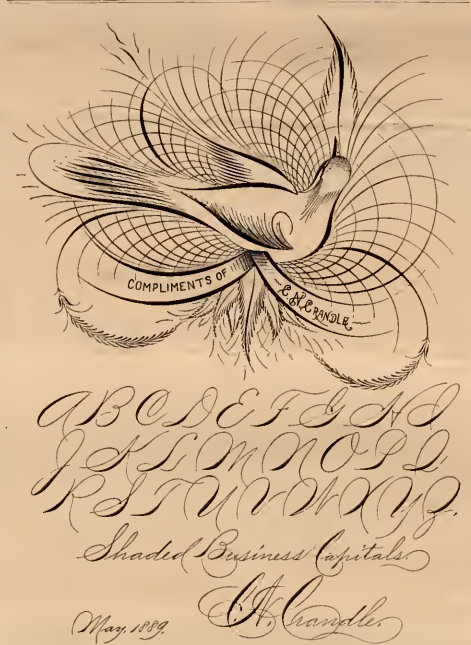 COMPLIMENTS OF
C. H. CRANDLE
A B C D E F G H I
J K L M N O P Q
R S T U V W X Y Z.
Shaded Business Capitals.
C. H. Crandle.
May. 1889.